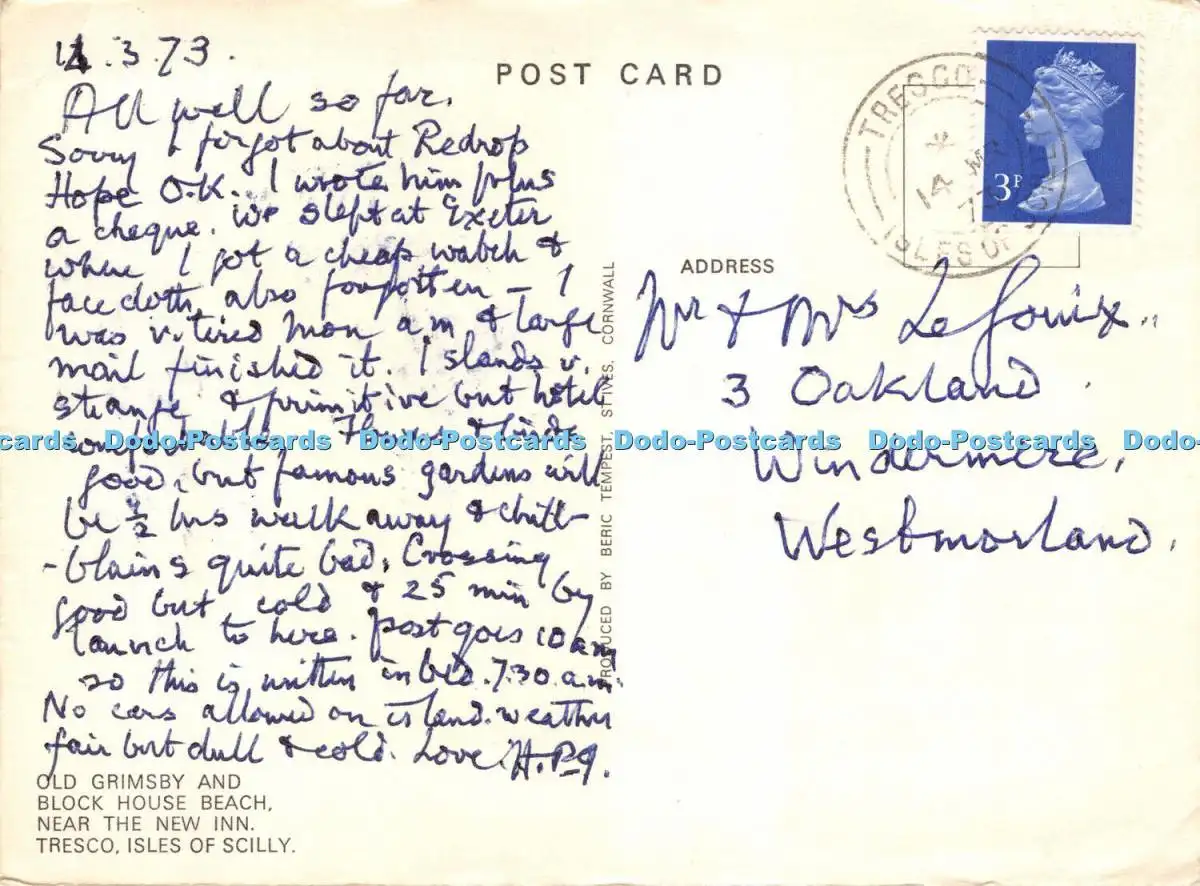 14.3.73.
POST CARD
All well so far.
Sorry I forgot about Redrop
Hope O.K. I wrote him plus
a cheque. We slept at Exeter
where I got a cheap watch &
face cloth, also forgotten - I
was v. tired Mon am & large
mail finished it. Islands v.
strange & primitive but hotel
good, but famous gardens will
be ½ hrs walk away & chill-
-blains quite bad. Crossing
good but cold & 25 min by
launch to here. Post goes 10 am
so this is written in bed. 7.30 a.m.
No cars allowed on island. weather
fair but dull & cold. Love. H.P.
OLD GRIMSBY AND
BLOCK HOUSE BEACH,
NEAR THE NEW INN.
TRESCO, ISLES OF SCILLY.
PRODUCED BY BERIC TEMPEST, ST IVES, CORNWALL
TRESCO
14 MR
ISLES OF SCILLY
3P
ADDRESS
Mr & Mrs
3 Oakland
Windermere,
Westmorland.
Dodo-Postcards Dodo-Postcards Dodo-Postcards Dodo-Postcards